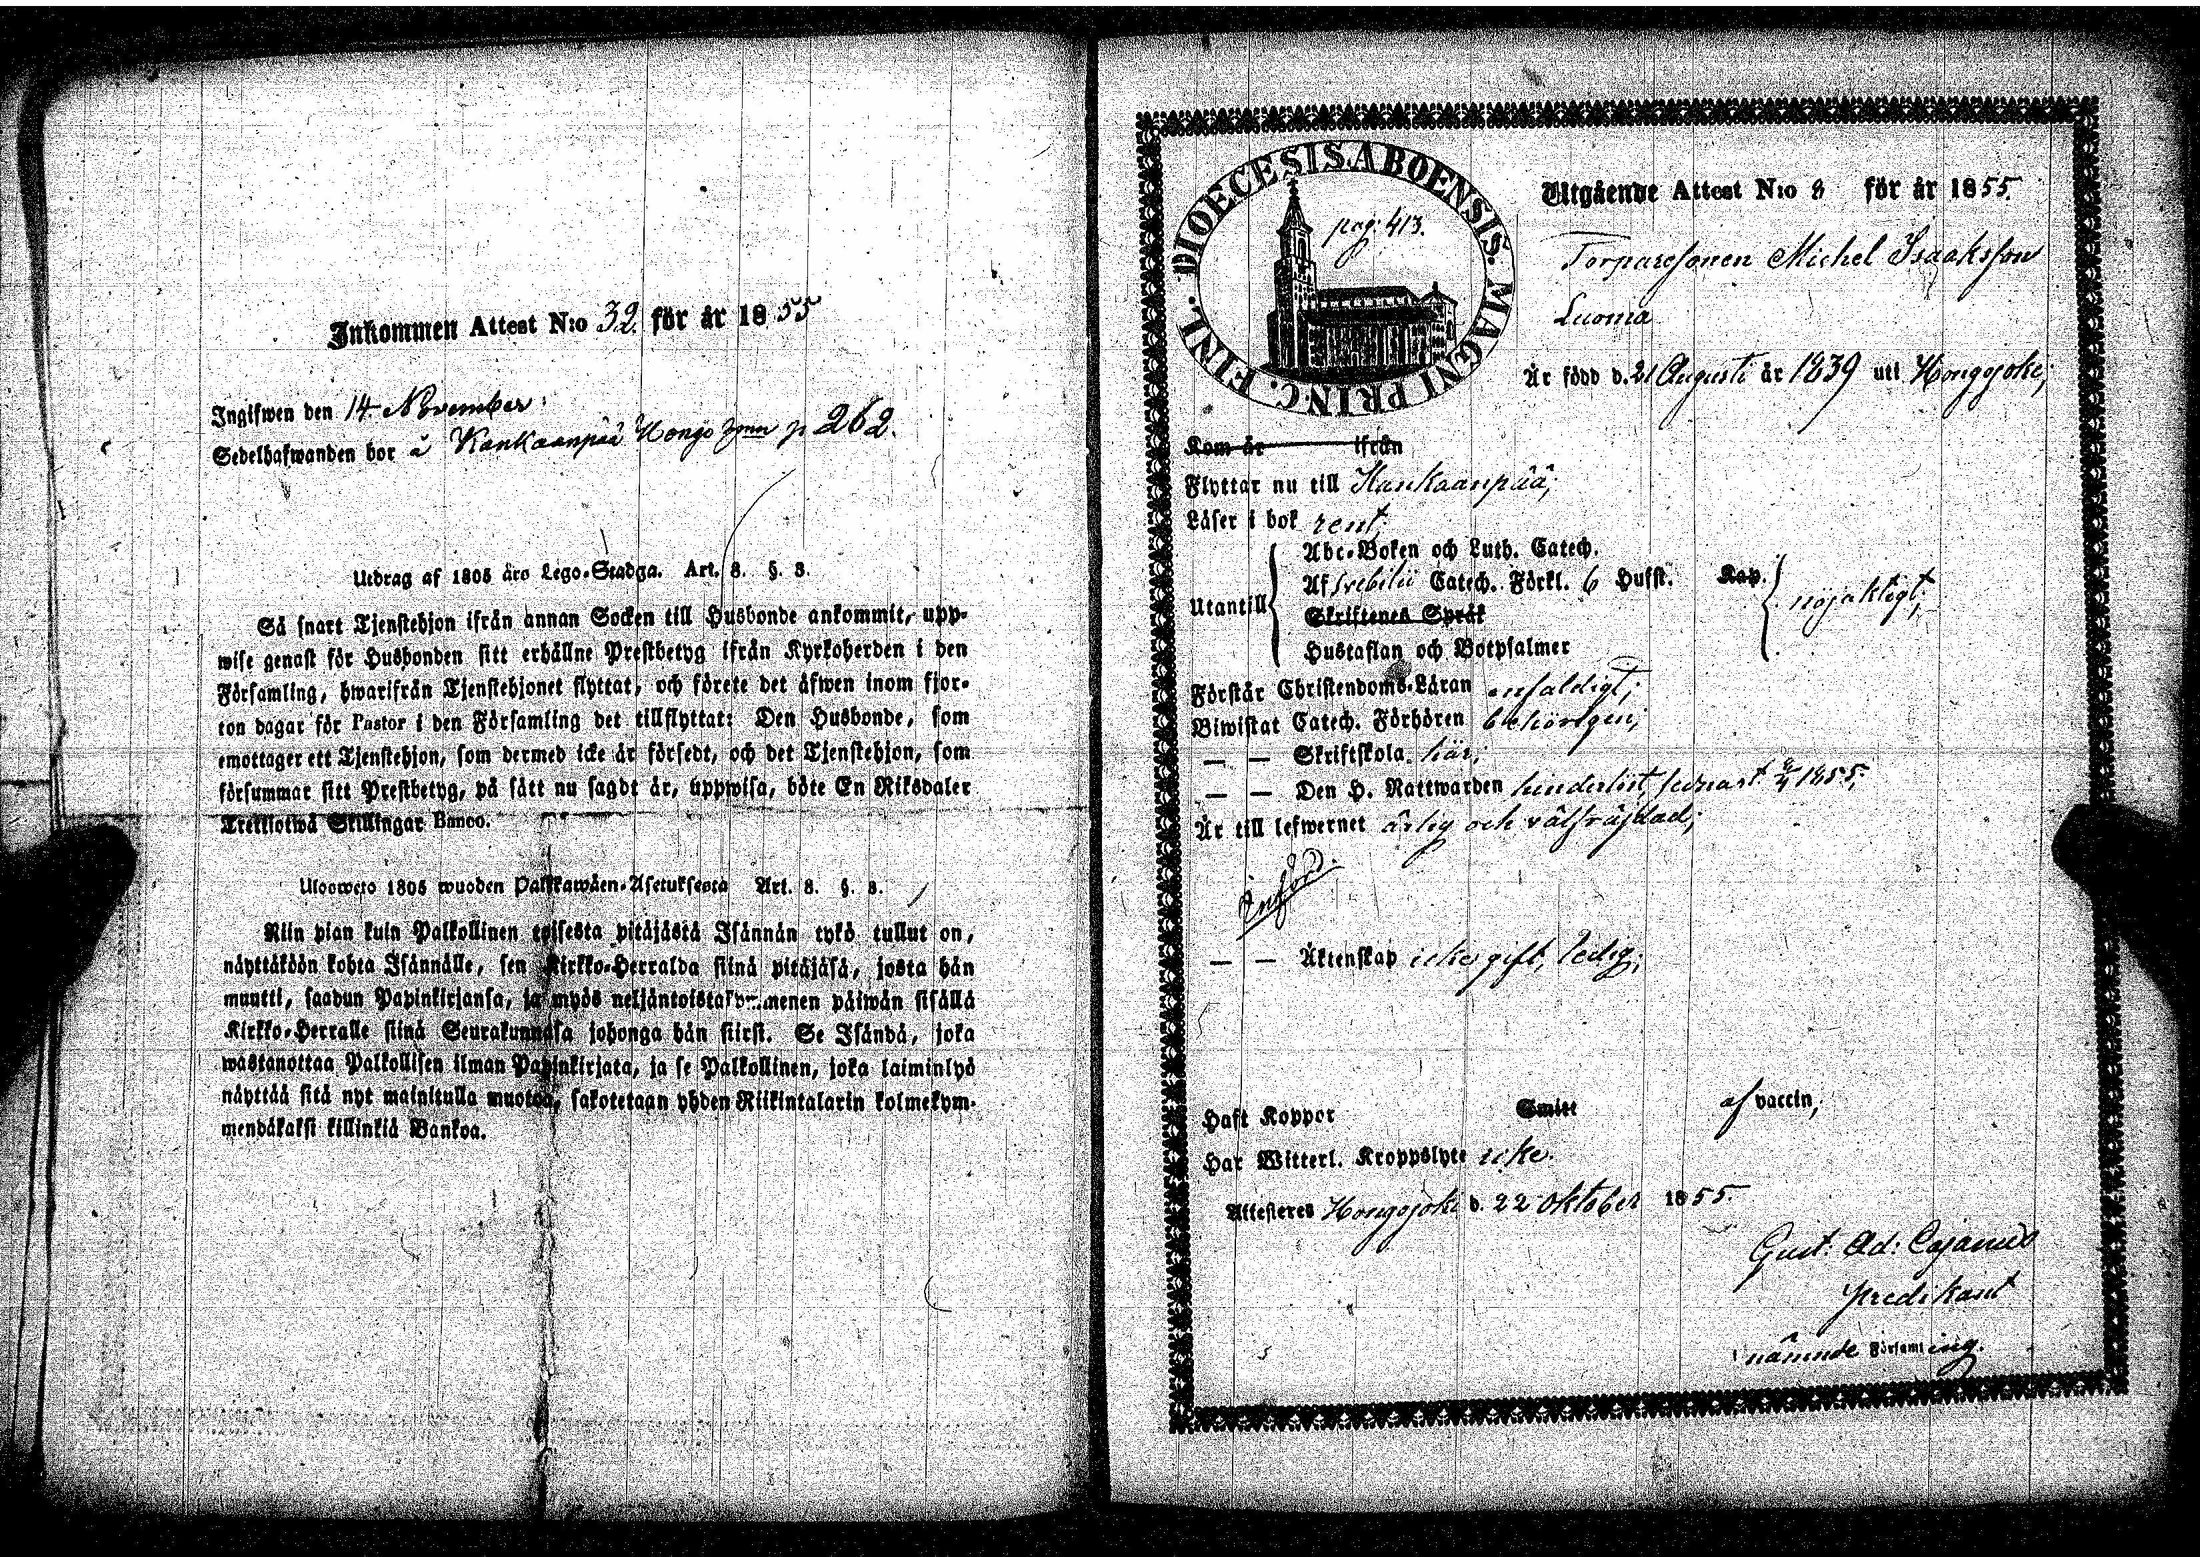 Inkommen Attest N:o 32. för år 1855
Ingifwen den 14 November.
Sedelhafwanden bor å Kankaanpää Hongo p 262.
Utdrag af 1805 års Lego-Stadga. Art. 8. §. 3.
Så snart Tjenstehjon ifrån annan Socken till Husbonde ankommit, upp-
wise genast för Husbonden sitt erhållne Prestbetyg ifrån Kyrkoherden i den
Församling, hwarifrån Tjenstehjonet flyttat, och förete det äfwen inom fjor-
ton dagar för Pastor i den Församling det tillflyttat: Den Husbonde, som
emottager ett Tjenstehjon, som dermed icke är försedt, och det Tjenstehjon, som
försummar sitt Prestbetyg, på sätt nu sagdt är, uppwisa, böte En Riksdaler
Trettiotwå Skillingar Banco.
Ulosweto 1805 wuoden Palkkawäen-Asetuksesta Art. 8. §. 3.
Niin pian kuin Palkollinen toisesta pitäjästä Isännän tykö tullut on,
näyttäköön kohta Isännälle, sen Kirkko-Herralda siinä pitäjäsä, josta hän
muutti, saadun Papinkirjansa, ja myös neljäntoistakymmenen päiwän sisällä
Kirkko-Herralle siinä Seurakunnasa johonga hän siirsi. Se Isändä, joka
wastanottaa Palkollisen ilman Papinkirjata, ja se Palkollinen, joka laiminlyö
näyttää sitä nyt mainitulla muotoa, sakotetaan yhden Riikintalarin kolmekym-
mendäkaksi killinkiä Bankoa.
DIOECESIS ABOENSIS. MAGNI PRINC. FINL.
pag: 413.
Utgående Attest N:o 8 för år 1855.
Torparesonen Michel Isaaksson
Luoma
Är född d. 21 Augusti år 1839 uti Hongojoki;
Kom år ifrån
Flyttar nu till Kankaanpää;
Läser i bok rent;
Utantill
Abc-Boken och Luth. Catech.
Af Svebilii Catech. Förkl. 6 Hufst. Kap.
Skriftenes Språk
Hustaflan och Botpsalmer
nöjaktigt;
Förstår Christendoms-Läran enfaldigt;
Biwistat Catech. Förhören behörigen;
— — Skriftskola här;
— — Den H. Nattwarden hinderlöst, senast 8/4 1855;
Är till lefwernet ärlig och välfräjdad;
— — Äktenskap icke gift, ledig;
Haft Koppor Smitt af vaccin;
Har Witterl. Kroppslyte icke.
Attesteres Hongojoki d. 22 Oktober 1855.
Gust: Ad: Cajanus
Predikant
i nämnde Församling.